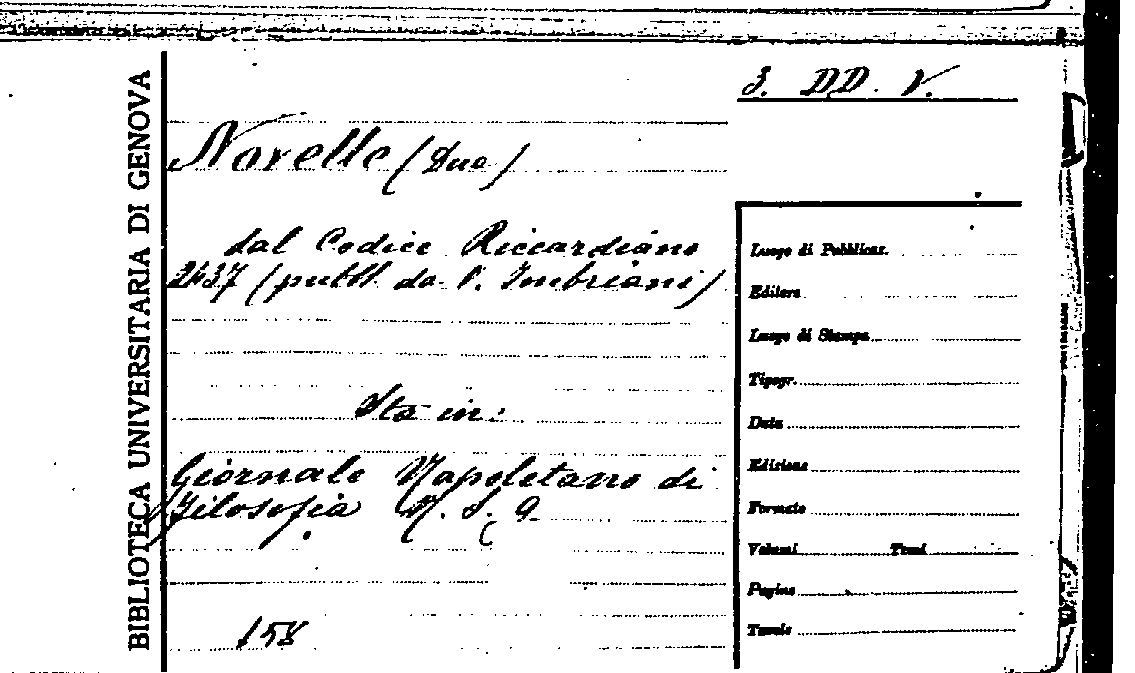 BIBLIOTECA UNIVERSITARIA DI GENOVA
3. DD. V.
Novelle (Due)
dal Codice Riccardiano
2437 (pubbl. da V. Imbriani)
Sta in:
Giornale Napoletano di
Filosofia N. S. 9
158
Luogo di Pubblicaz.
Editore
Luogo di Stampa
Tipogr.
Data
Edizione
Formato
Volumi Tomi
Pagine
Tavole